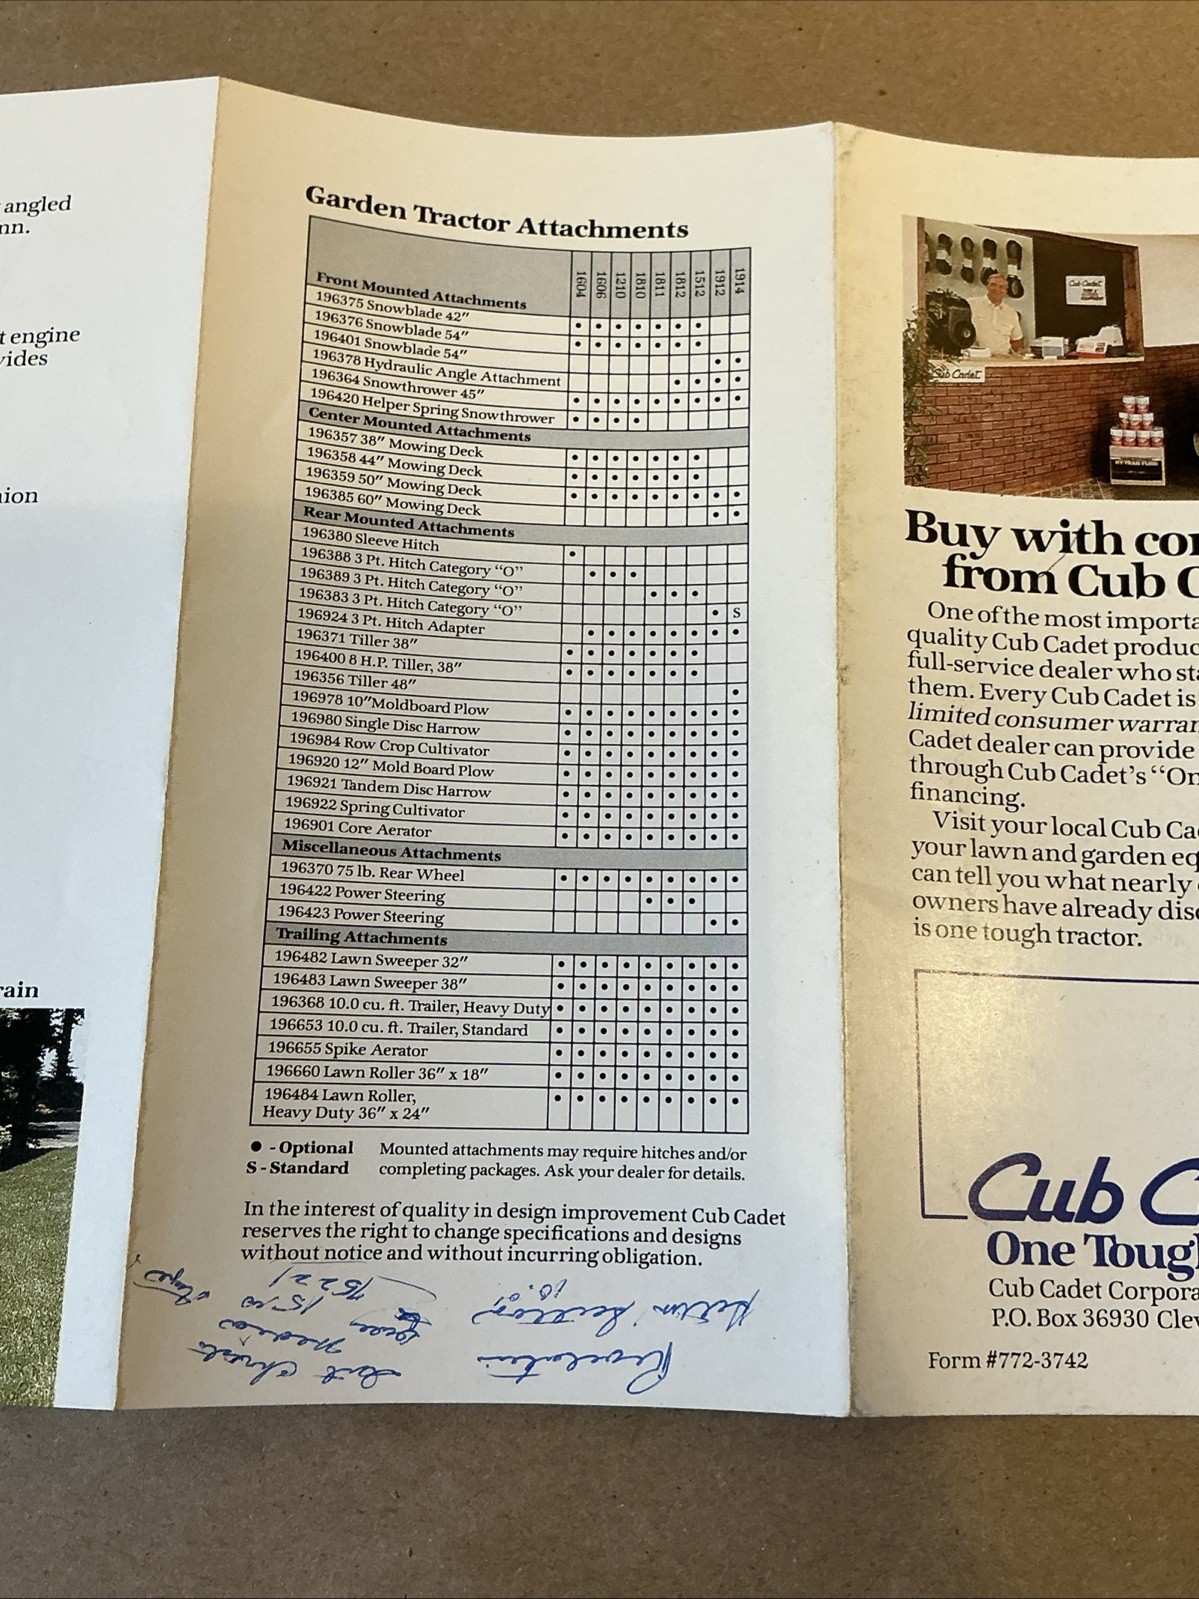 angled
nn.
t engine
vides
nion
rain
Garden Tractor Attachments
Front Mounted Attachments 1604 1606 1210 1810 1811 1812 1512 1912 1914
196375 Snowblade 42″ • • • • • • •
196376 Snowblade 54″ • • • • • • •
196401 Snowblade 54″ • •
196378 Hydraulic Angle Attachment • • • •
196364 Snowthrower 45″ • • • • • • • • •
196420 Helper Spring Snowthrower • • • •
Center Mounted Attachments
196357 38″ Mowing Deck • • • • • • •
196358 44″ Mowing Deck • • • • • • •
196359 50″ Mowing Deck • • • • • • • • •
196385 60″ Mowing Deck • •
Rear Mounted Attachments
196380 Sleeve Hitch •
196388 3 Pt. Hitch Category “O” • • •
196389 3 Pt. Hitch Category “O” • • •
196383 3 Pt. Hitch Category “O” • S
196924 3 Pt. Hitch Adapter • • • • • • • •
196371 Tiller 38″ • • • • • • •
196400 8 H.P. Tiller, 38″ • • • • • • •
196356 Tiller 48″ •
196978 10″Moldboard Plow • • • • • • • • •
196980 Single Disc Harrow • • • • • • • • •
196984 Row Crop Cultivator • • • • • • • • •
196920 12″ Mold Board Plow • • • • • • • • •
196921 Tandem Disc Harrow • • • • • • • • •
196922 Spring Cultivator • • • • • • • • •
196901 Core Aerator • • • • • • • • •
Miscellaneous Attachments
196370 75 lb. Rear Wheel • • • • • • • • •
196422 Power Steering • • •
196423 Power Steering • •
Trailing Attachments
196482 Lawn Sweeper 32″ • • • • • • • • •
196483 Lawn Sweeper 38″ • • • • • • • • •
196368 10.0 cu. ft. Trailer, Heavy Duty • • • • • • • • •
196653 10.0 cu. ft. Trailer, Standard • • • • • • • • •
196655 Spike Aerator • • • • • • • • •
196660 Lawn Roller 36″ x 18″ • • • • • • • • •
196484 Lawn Roller, • • • • • • • • •
Heavy Duty 36″ x 24″
• - Optional
S - Standard
Mounted attachments may require hitches and/or
completing packages. Ask your dealer for details.
In the interest of quality in design improvement Cub Cadet
reserves the right to change specifications and designs
without notice and without incurring obligation.
Cub Cadet
Cub Cadet
Buy with con
from Cub C
One of the most importa
quality Cub Cadet produc
full-service dealer who sta
them. Every Cub Cadet is
limited consumer warran
Cadet dealer can provide
through Cub Cadet’s “On
financing.
Visit your local Cub Ca
your lawn and garden eq
can tell you what nearly
owners have already disc
is one tough tractor.
Cub C
One Tough
Cub Cadet Corpora
P.O. Box 36930 Clev
Form #772-3742